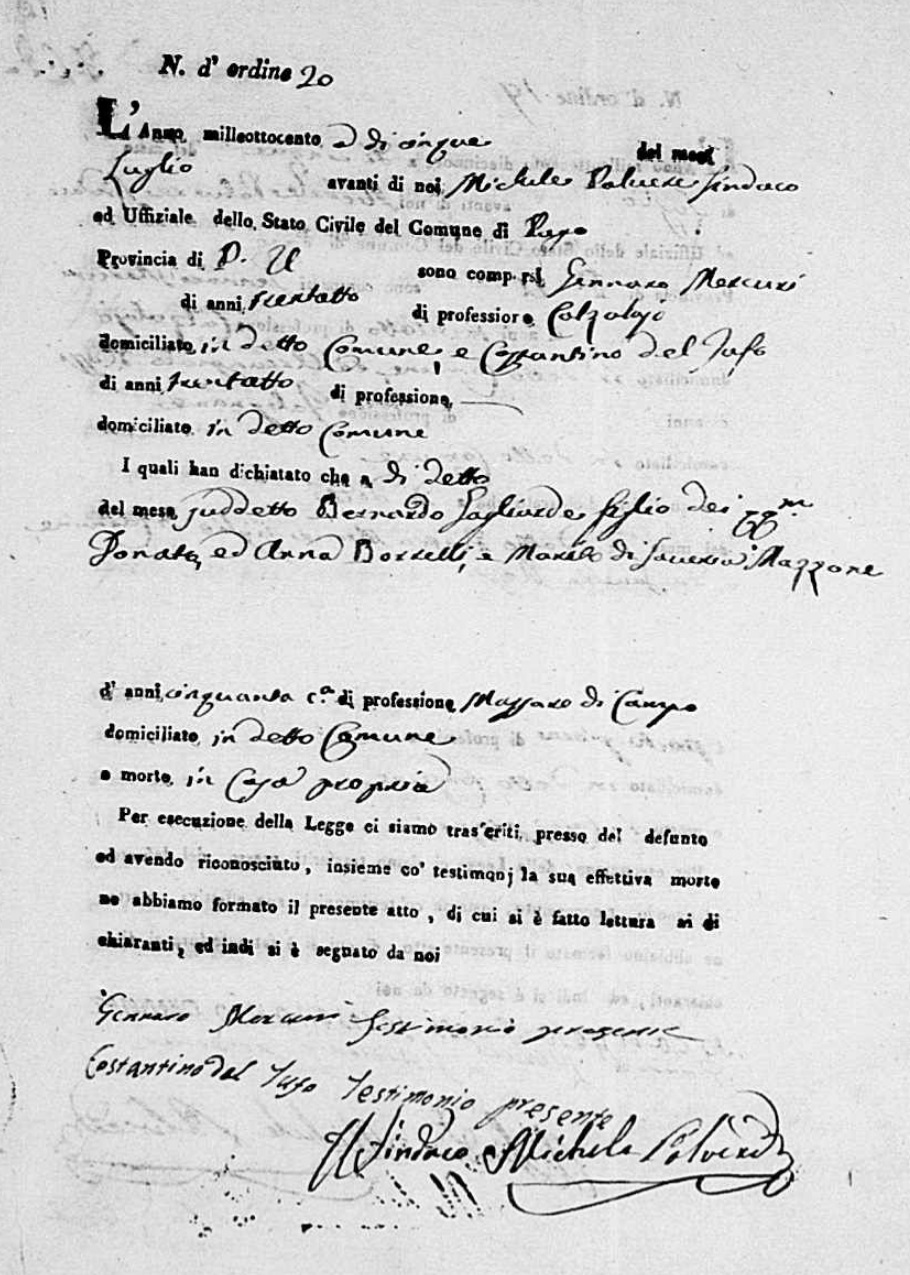 N. d' ordine 20
L' Anno milleottocento a di cinque del mese
Luglio avanti di noi Michele Polverè Sindaco
ed Uffiziale dello Stato Civile del Comune di
Provincia di P. U sono comp.rsi Gennaro Mercuri
di anni trentotto di professiore Calzolajo
domiciliato in detto Comune, e Costantino del Tufo
di anni trentotto di professione
domiciliato in detto Comune
I quali han dichiatato che a di detto
del mese suddetto Bernardo Gagliarde figlio dei qq.m
Donato, ed Anna Borrelli, e Marito di Saveria Mazzone
d' anni cinquanta c.a di professione Massaro di Campo
domiciliato in detto Comune
e morto in Casa propria
Per esecuzione della Legge ci siamo trasferiti presso del defunto
ed avendo riconosciuto, insieme co' testimonj la sua effettiva morte
ne abbiamo formato il presente atto, di cui si è fatto lettura ai di
chiaranti, ed indi si è segnato da noi
Gennaro Mercuri testimonio presente
Costantino del Tufo Testimonio presente
Il Sindaco Michele Polverè